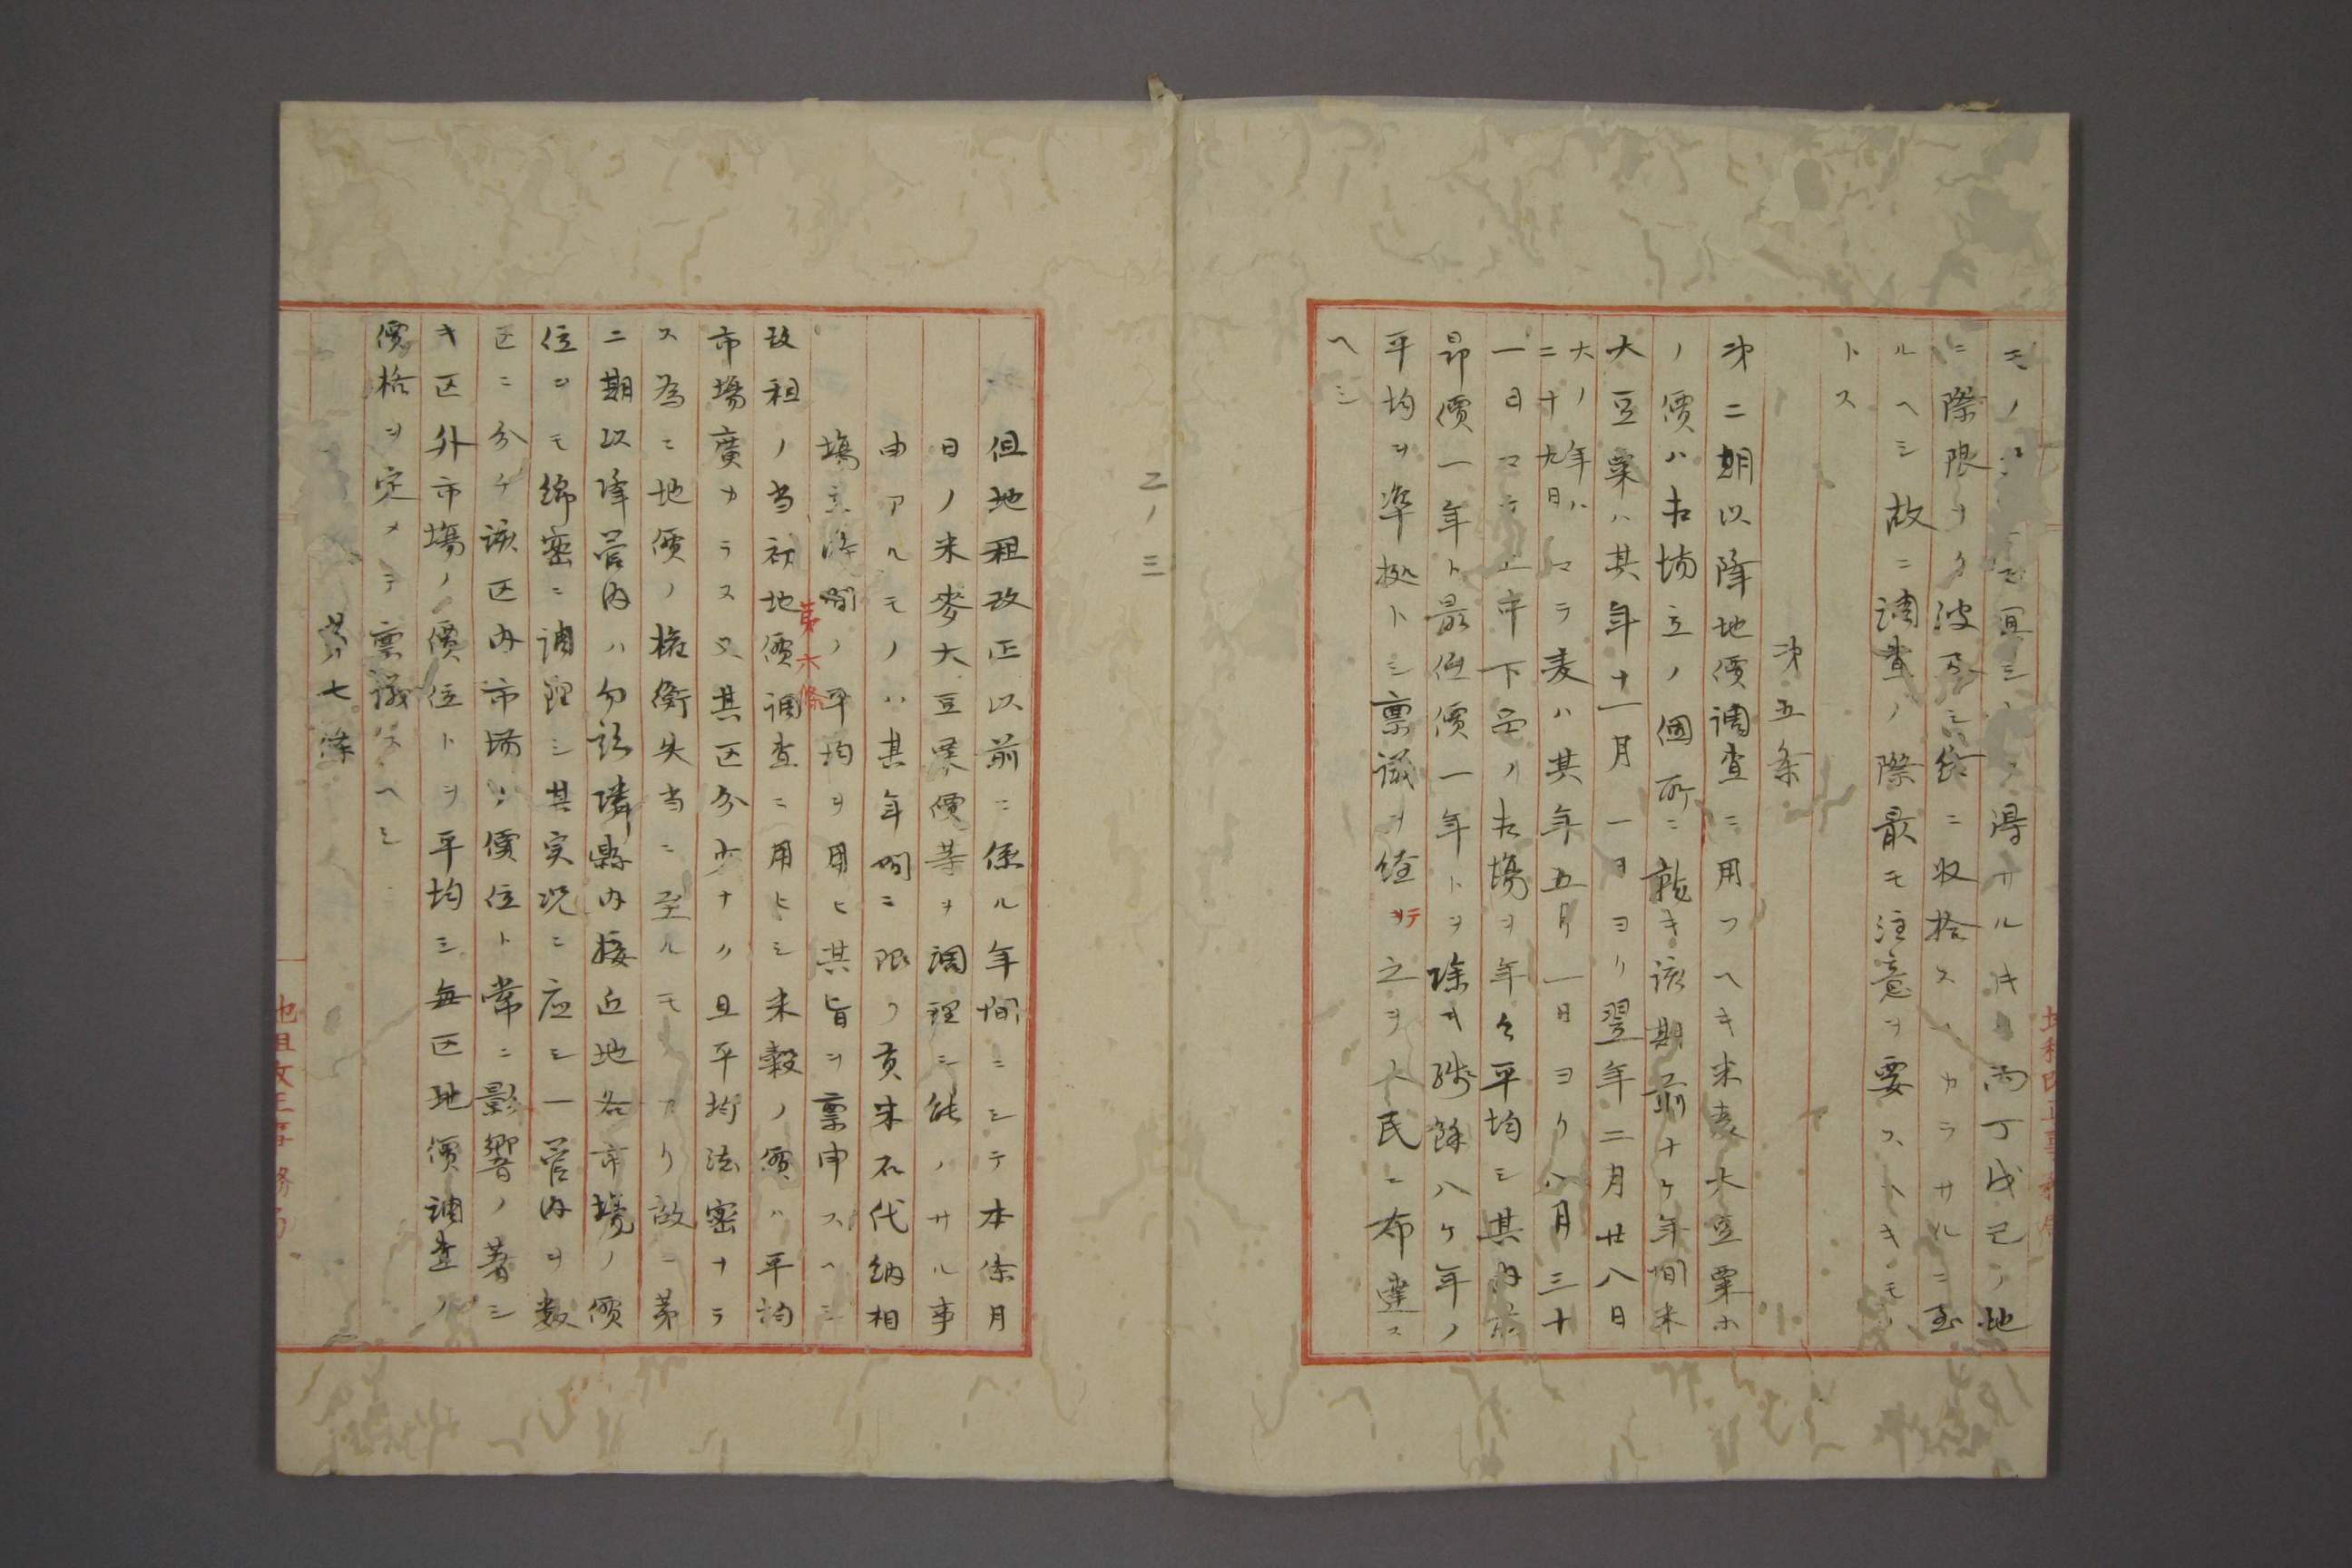 冝シ
得サル
丙丁戊己ノ地
ニ際限ナク波及シ終ニ収拾スヘカラサルニ至
ルヘシ故ニ調査ノ際最モ注意ヲ要スヘキモノ
トス
第五条
第二期以降地價調査ニ用フヘキ米麦大豆粟ホ
ノ價ハ相場立ノ個所ニ就キ該期前十ケ年間米
大豆粟ハ其年十一月一日ヨリ翌年二月廿八日
大ノ年ハ二十九日マテ麦ハ其年五月一日ヨリ八月三十
一日マテ上中下ノ相場ヲ年々平均シ其内
昻價一年ト最低價一年トヲ除キ残餘八ケ年ノ
平均ヲ準拠トシ禀議ヲ経テ之ヲ人民ニ布達ス
ヘシ
二ノ三
但地租改正以前ニ係ル年間ニシテ本条月
日ノ米麥大豆粟價等ヲ調理シ能ハサル事
由アルモノハ其年間ニ限リ貢米石代納相
場
間ノ平均ヲ用ヒ其旨ヲ禀申スヘシ
第六條
改租ノ当初地價調査ニ用ヒシ米穀ノ價ハ平均
市場廣カラス又其区分少ナク且平均法密ナラ
ス為ニ地價ノ権衡失当ニ至ルモノアリ故ニ第
二期以降管内ハ勿論隣縣内接近地各市場ノ價
位ヲモ綿密ニ調理シ其実况ニ応シ一管内ヲ数
区ニ分チ該区内市場ノ價位ト常ニ影響ノ著シ
キ区外市場ノ價位トヲ平均シ毎区地價調査ノ
價格ヲ定メテ禀議スヘシ
第七条
地租改正事務局